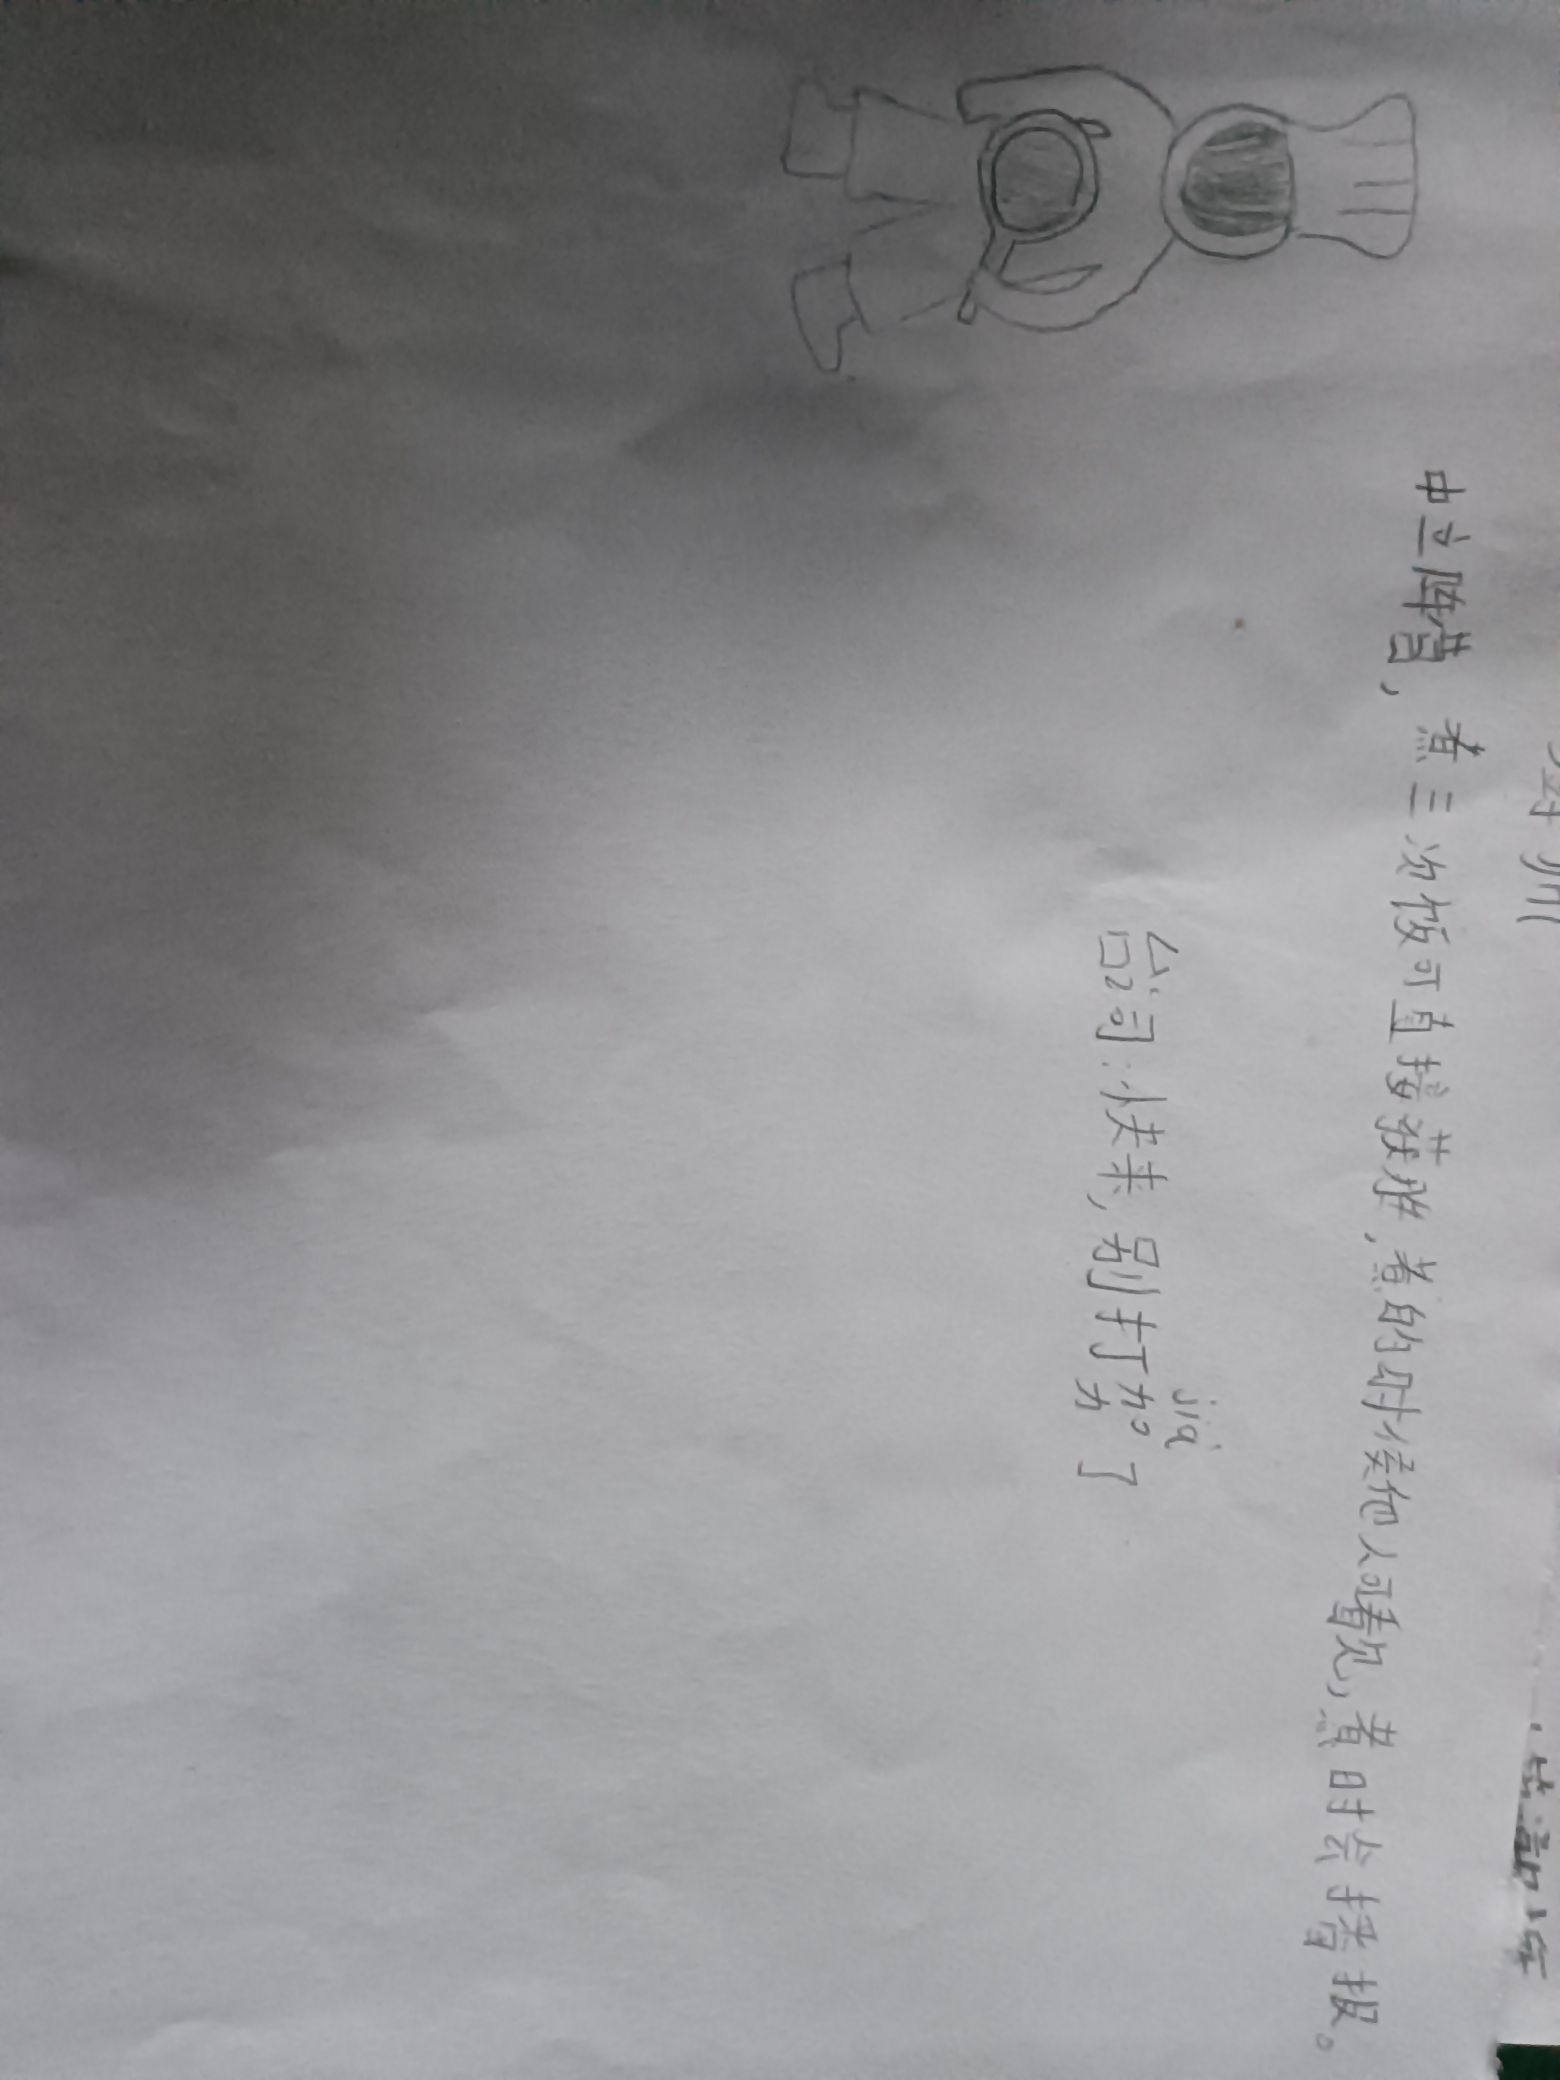 中立阵营,煮三次饭可直接获胜,煮的时候他人可看见,煮时会播报。
jià
台词:快来,别打架了